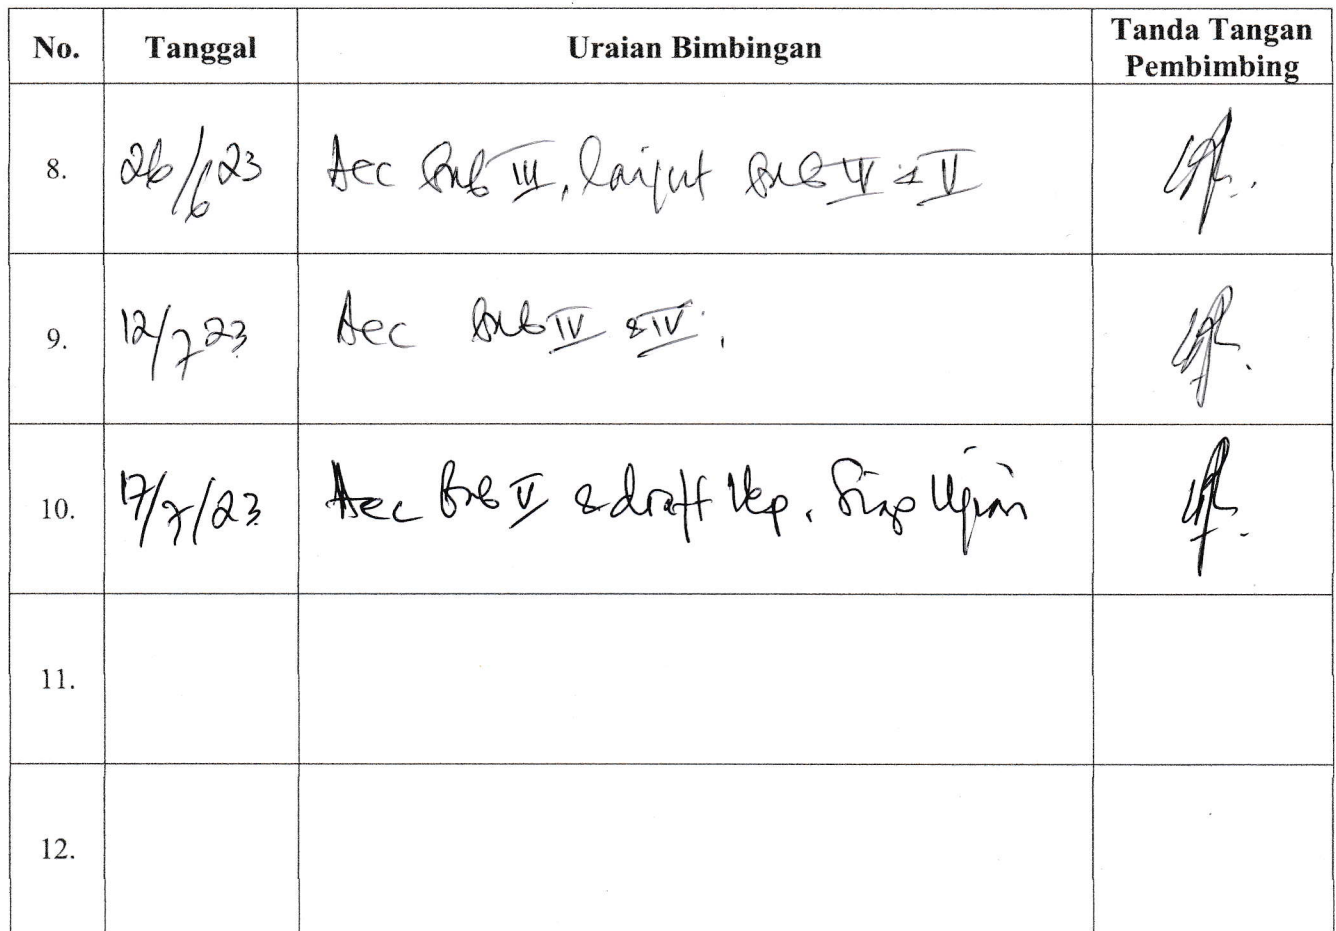 No. Tanggal Uraian Bimbingan Tanda Tangan Pembimbing
8. 26/6 23 Acc Bab III, lanjut Bab IV & V
9. 12/7 23 Acc Bab IV & IV.
10. 17/7/23 Acc Bab V & draft Siap Ujian
11.
12.